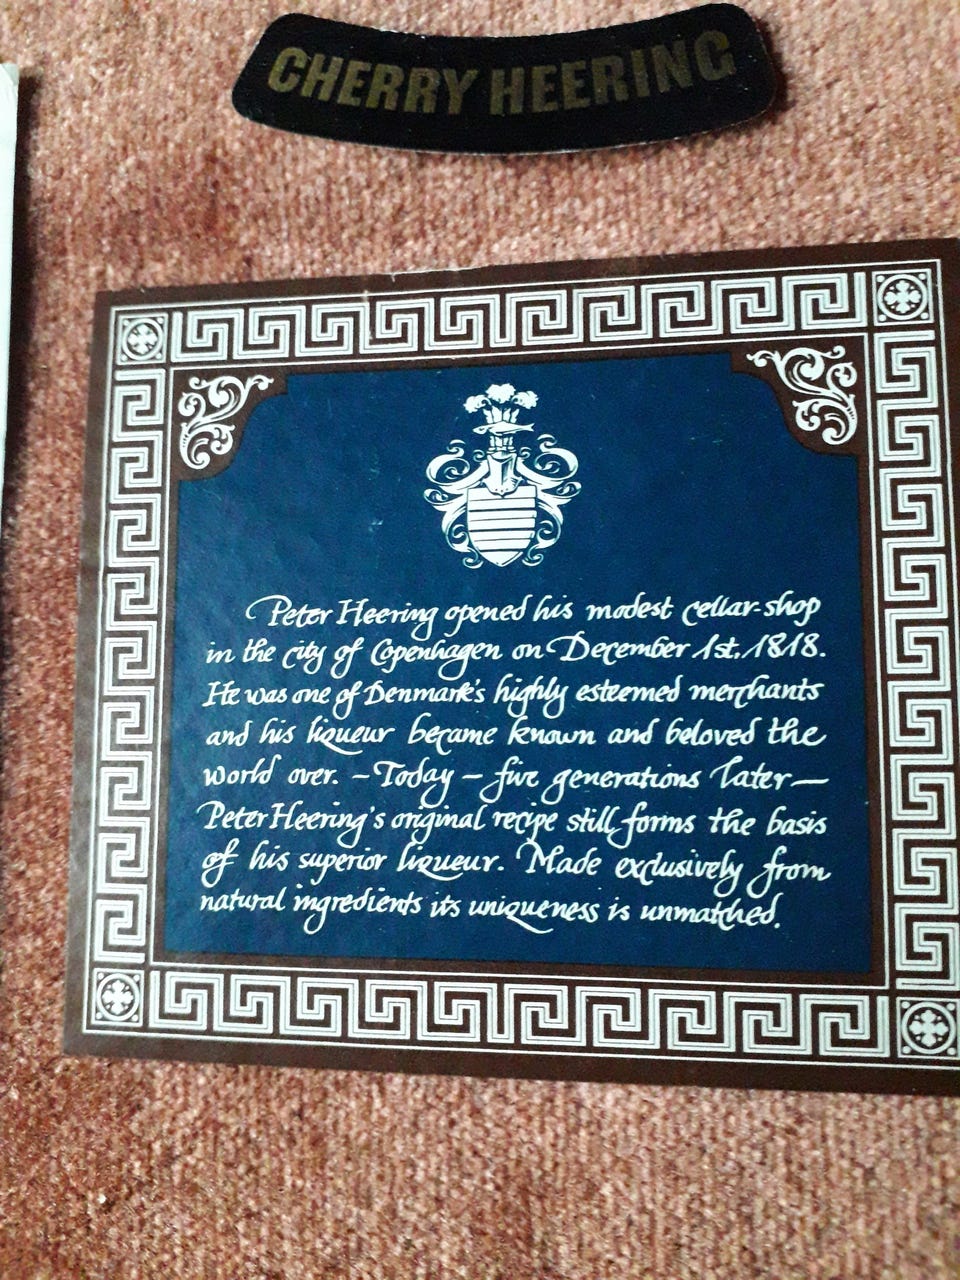 CHERRY HEERING
Peter Heering opened his modest cellar-shop
in the city of Copenhagen on December 1st. 1818.
He was one of Denmark's highly esteemed merchants
and his liqueur became known and beloved the
world over. – Today – five generations later –
Peter Heering's original recipe still forms the basis
of his superior liqueur. Made exclusively from
natural ingredients its uniqueness is unmatched.